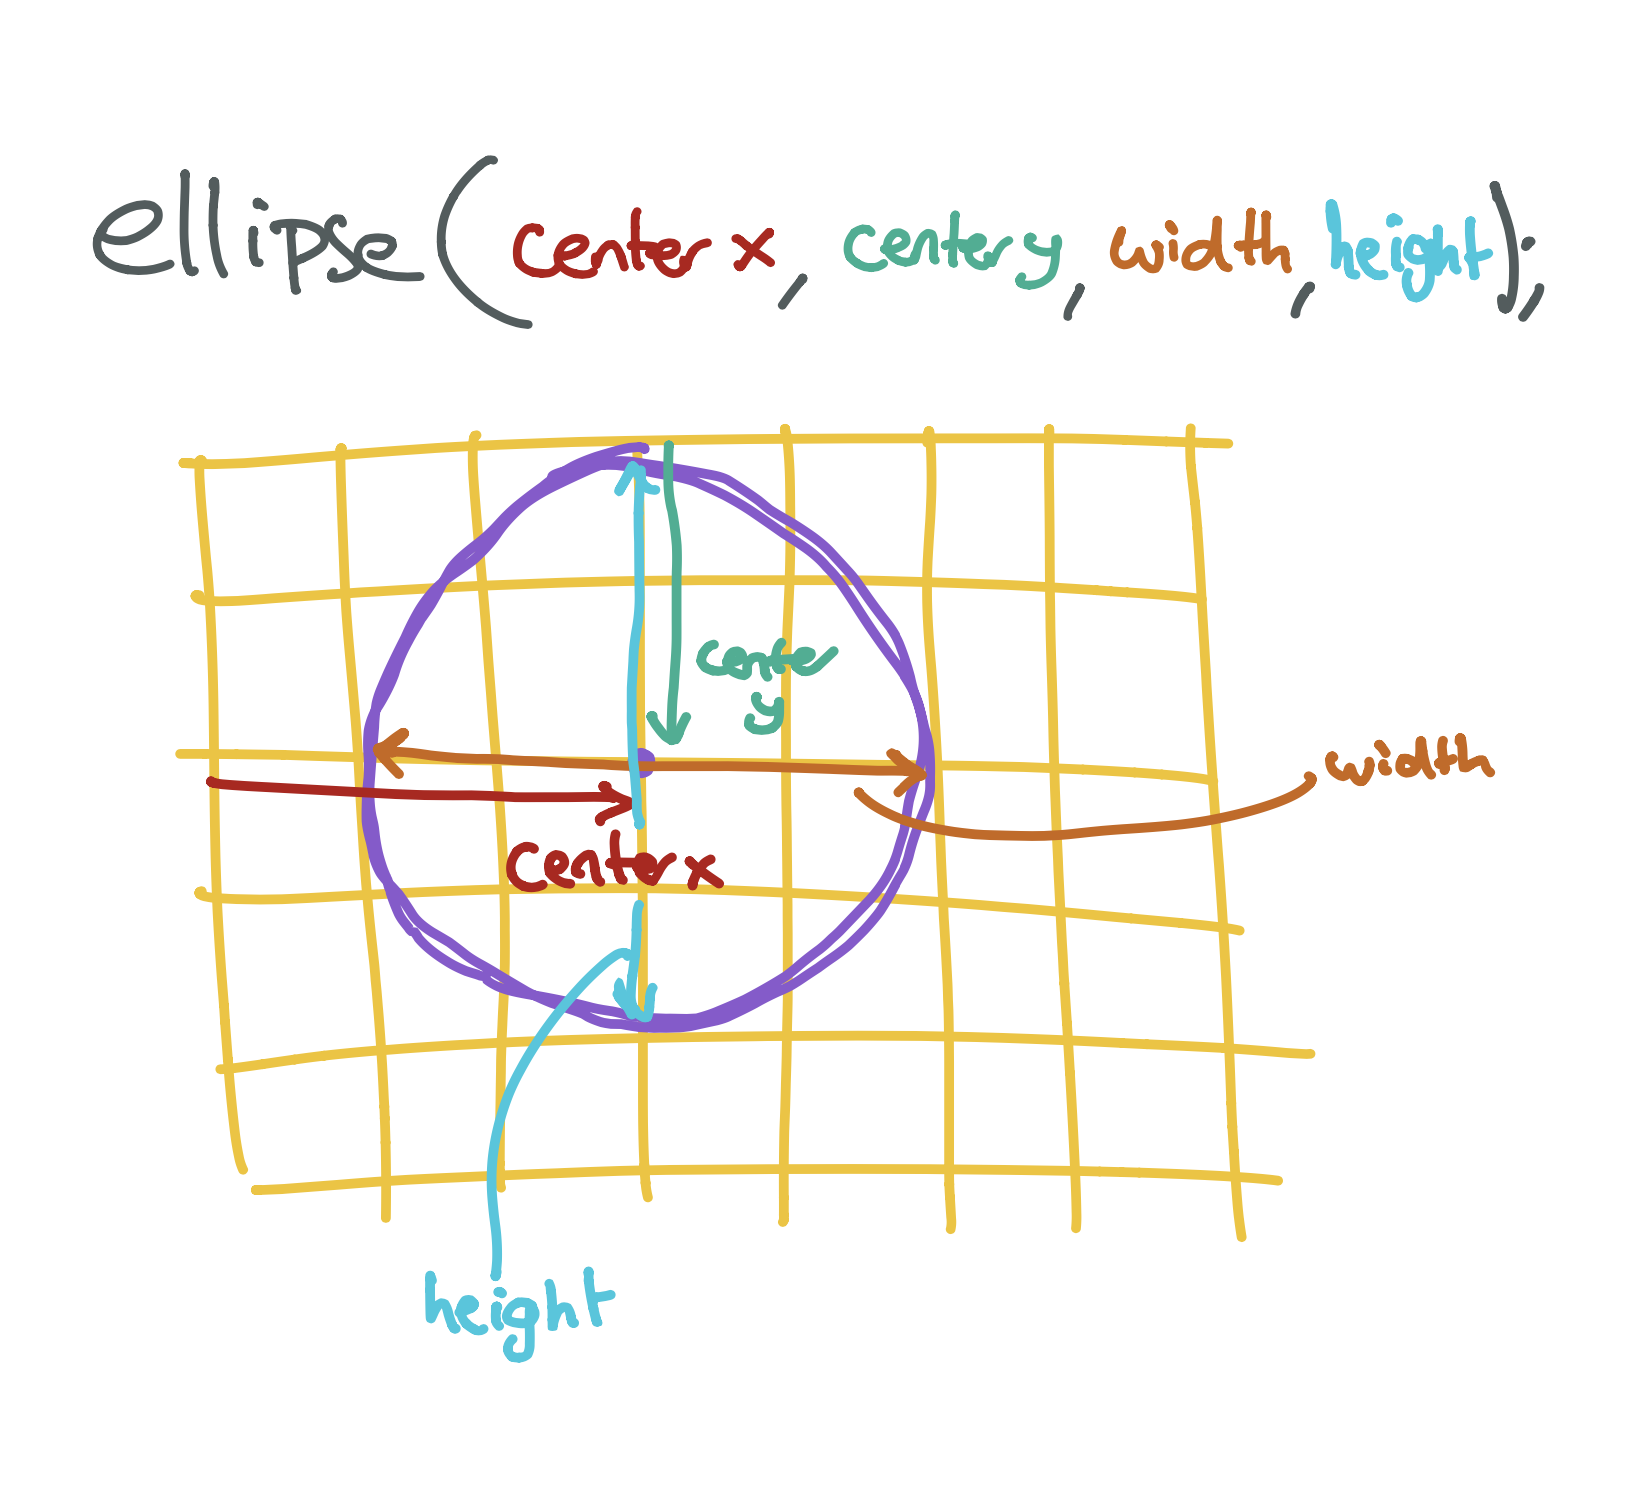 ellipse(center x, center y, width, height);
center
y
width
center x
height